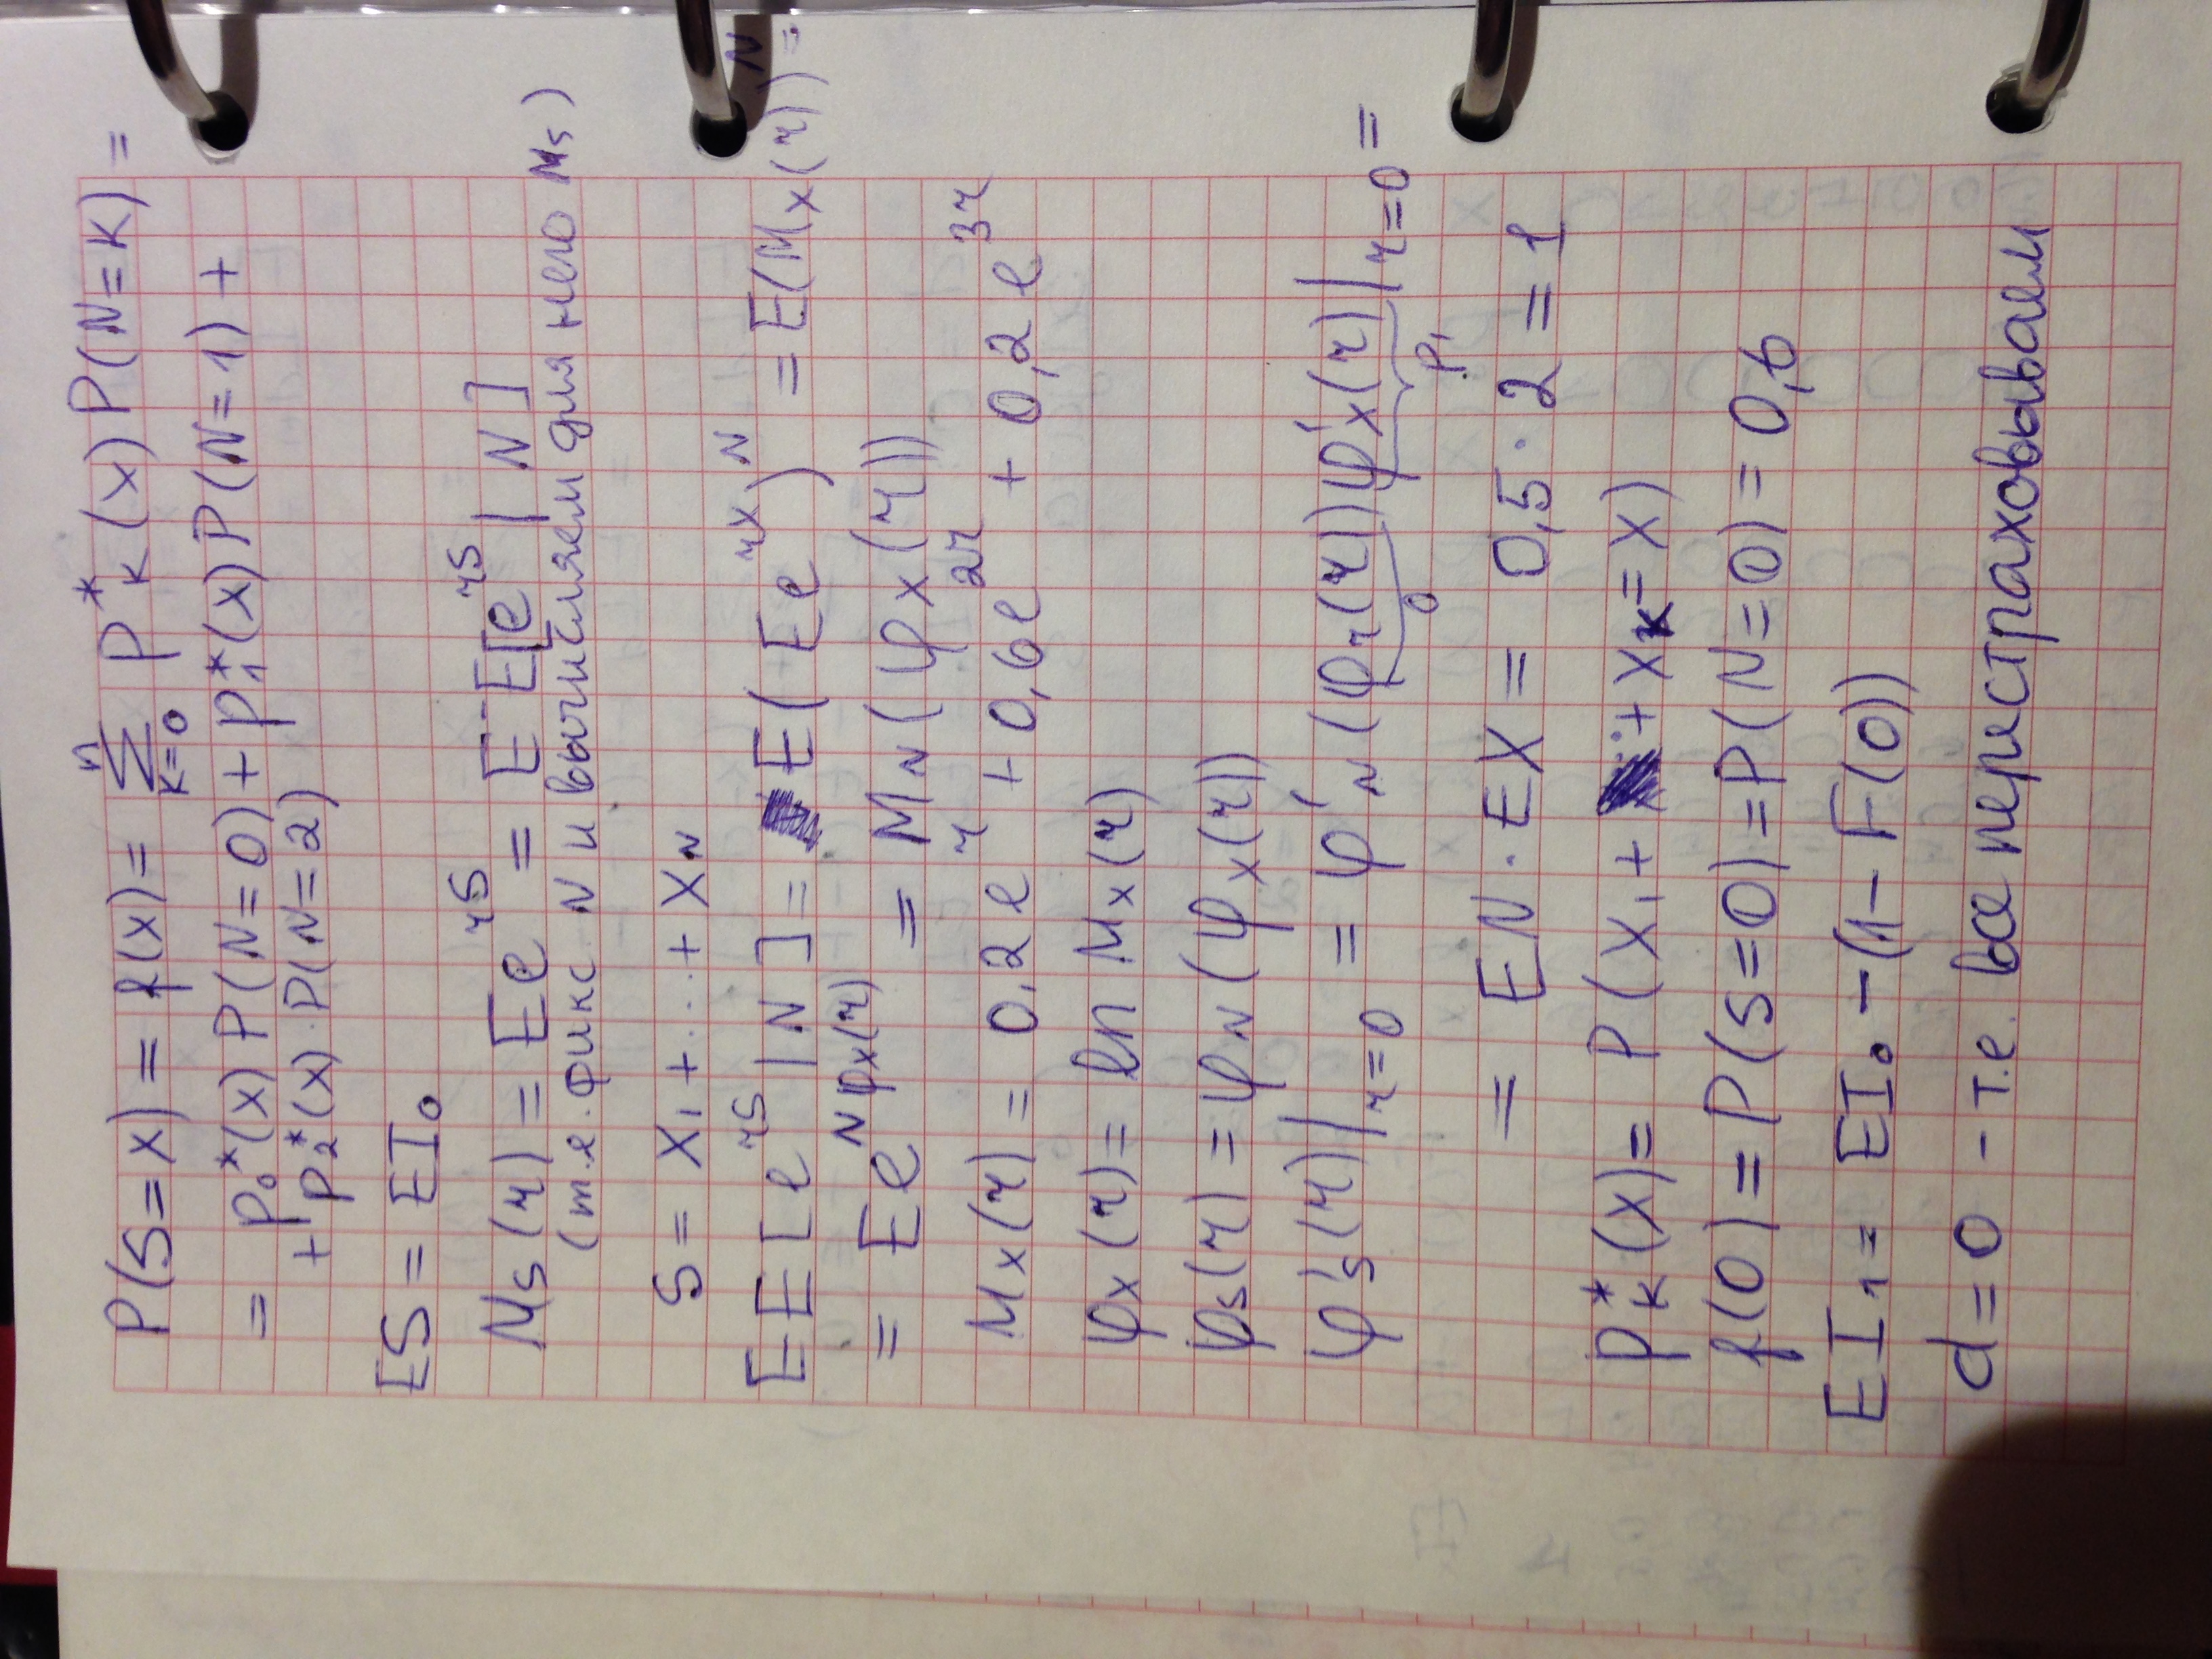 P(S=x) = f(x) = Σ_{k=0}^{n} P*_k(x) P(N=k) =
= P_0*(x) P(N=0) + P_1*(x) P(N=1) +
+ P_2*(x) · P(N=2)
ES = EI_0
M_S(r) = E e^{rS} = E E[e^{rS} | N]
(т.е. фикс. N и вычисляем для него M_S)
S = X_1 + ... + X_N
E E[e^{rS} | N] = E(E e^{rX})^N = E(M_X(r))^N =
= E e^{Nφ_X(r)} = M_N(φ_X(r))
M_X(r) = 0,2e^r + 0,6e^{2r} + 0,2e^{3r}
φ_X(r) = ln M_X(r)
φ_S(r) = φ_N(φ_X(r))
φ'_S(r)|_{r=0} = φ'_N(φ_r(r)) φ'_X(r)|_{r=0} =
0 P_1
= EN · EX = 0,5 · 2 = 1
P*_k(x) = P(X_1 + ... + X_k = X)
f(0) = P(S=0) = P(N=0) = 0,6
EI_1 = EI_0 - (1 - F(0))
d = 0 - т.е. все перестраховываем